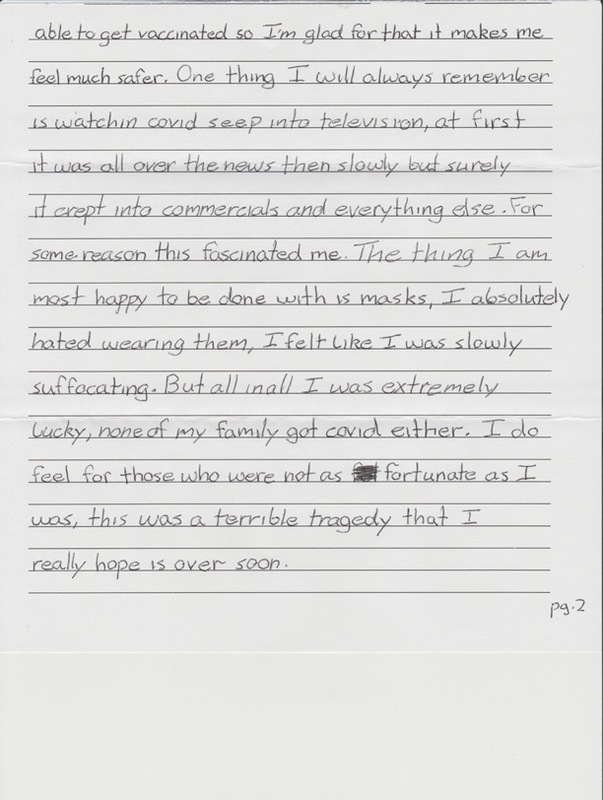 able to get vaccinated so I'm glad for that it makes me
feel much safer. One thing I will always remember
is watchin covid seep into television, at first
it was all over the news then slowly but surely
it crept into commercials and everything else. For
some reason this fascinated me. The thing I am
most happy to be done with is masks, I absolutely
hated wearing them, I felt like I was slowly
suffocating. But all in all I was extremely
lucky, none of my family got covid either. I do
feel for those who were not as fortunate as I
was, this was a terrible tragedy that I
really hope is over soon.
pg.2